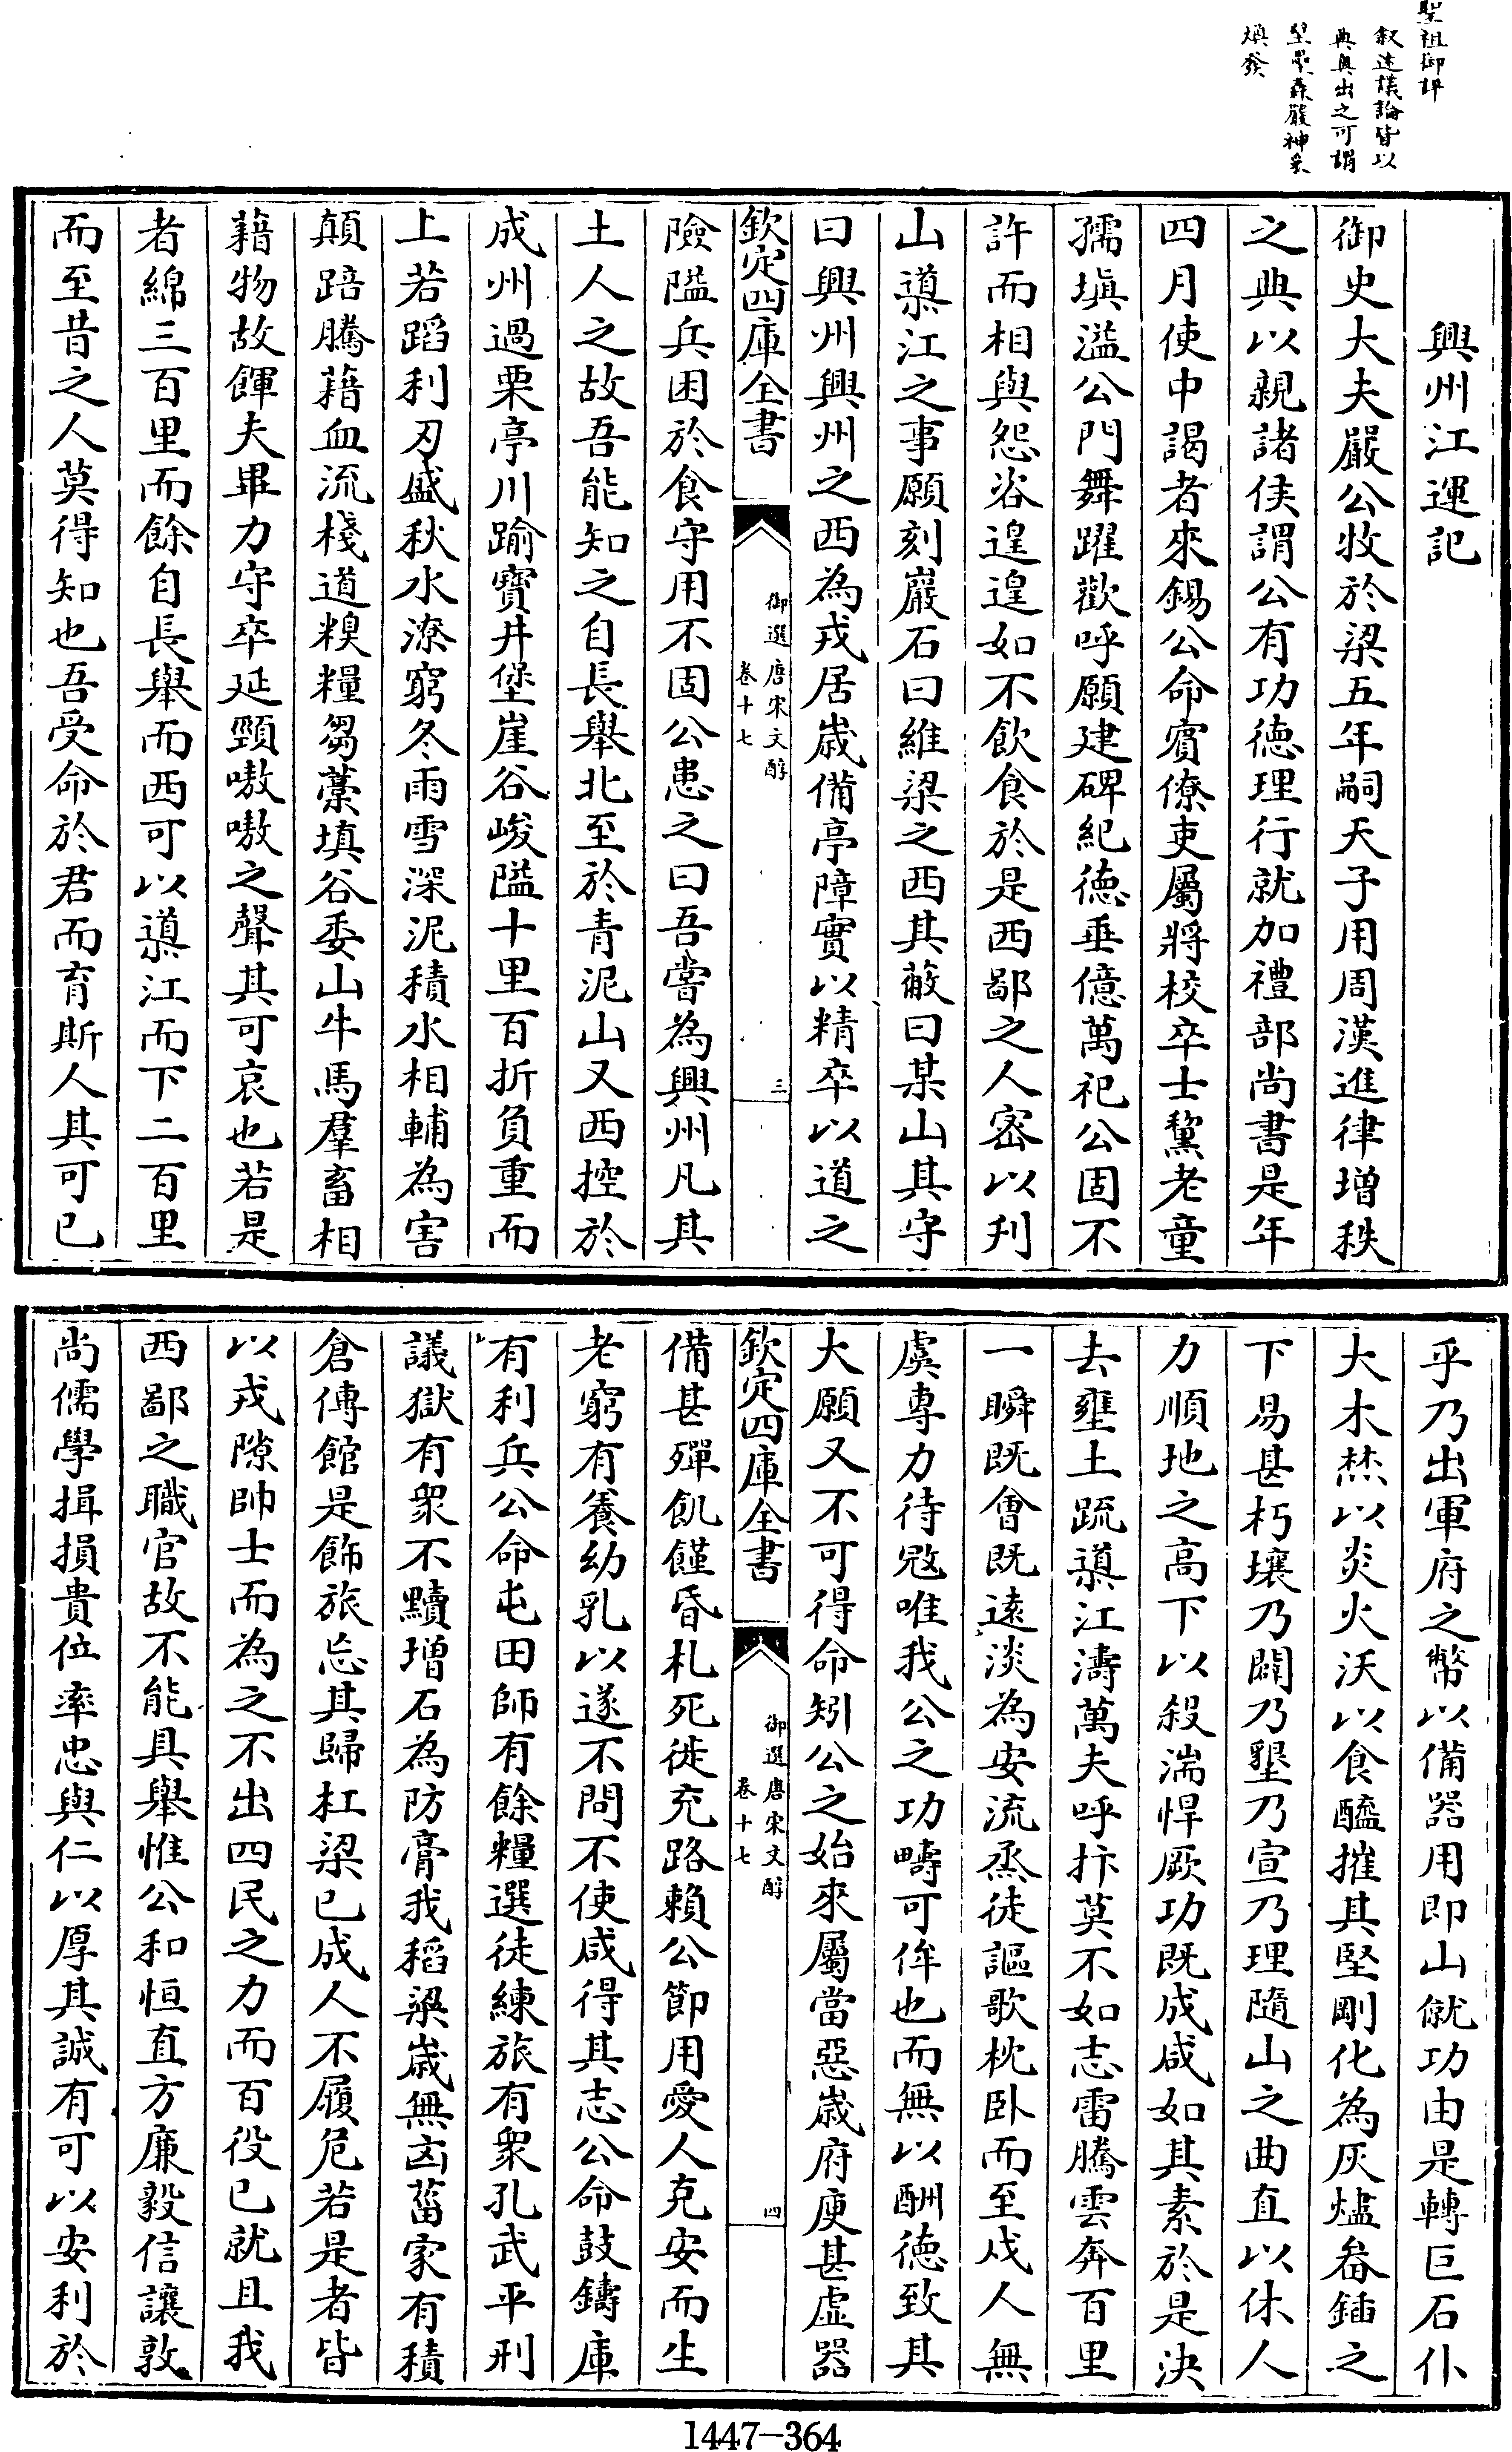 聖祖御評
叙述議論皆以
典奥出之可謂
堅重森嚴神采
煥發
興州江運記
御史大夫嚴公牧於梁五年嗣天子用周漢進律增秩
之典以親諸侯謂公有功徳理行就加禮部尚書是年
四月使中謁者來錫公命賓僚吏屬將校卒士黧老童
孺塡溢公門舞躍歡呼願建碑紀徳垂億萬祀公固不
許而相與怨咨遑遑如不飲食於是西鄙之人宻以刋
山導江之事願刻巖石曰維梁之西其蔽曰某山其守
曰興州興州之西為戎居嵗備亭障實以精卒以道之
欽定四庫全書
御選唐宋文醇
卷十七
三
險隘兵困於食守用不固公患之曰吾嘗為興州凡其
土人之故吾能知之自長舉北至於青泥山又西控於
成州過栗亭川踰寳井堡崖谷峻隘十里百折負重而
上若蹈利刃盛秋水潦窮冬雨雪深泥積水相輔為害
顛踣騰藉血流棧道糗糧芻藁填谷委山牛馬羣畜相
藉物故餫夫畢力守卒延頸嗷嗷之聲其可哀也若是
者綿三百里而餘自長舉而西可以導江而下二百里
而至昔之人莫得知也吾受命於君而育斯人其可已
乎乃出軍府之幣以備器用即山僦功由是轉巨石仆
大木焚以炎火沃以食醯摧其堅剛化為灰燼畚鍤之
下易甚朽壤乃闢乃墾乃宣乃理隨山之曲直以休人
力順地之高下以殺湍悍厥功既成咸如其素於是決
去壅土疏導江濤萬夫呼抃莫不如志雷騰雲奔百里
一瞬既㑹既逺淡為安流烝徒謳歌枕卧而至戍人無
虞專力待宼唯我公之功疇可侔也而無以酬徳致其
大願又不可得命矧公之始來屬當惡嵗府庾甚虚器
欽定四庫全書
御選唐宋文醇
卷十七
四
備甚殫飢饉昏札死徙充路賴公節用愛人克安而生
老窮有養幼乳以遂不問不使咸得其志公命鼓鑄庫
有利兵公命屯田師有餘糧選徒練旅有衆孔武平刑
議獄有衆不黷增石為防膏我稻粱嵗無凶菑家有積
倉傳館是飾旅忘其歸杠梁已成人不履危若是者皆
以戎隙帥士而為之不出四民之力而百役已就且我
西鄙之職官故不能具舉惟公和恒直方廉毅信讓敦
尚儒學揖損貴位率忠與仁以厚其誠有可以安利於
1447-364